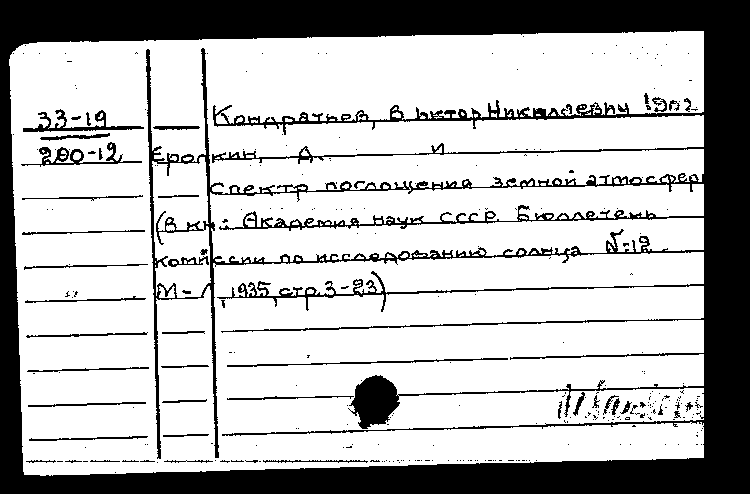 33-19 Кондратьев, Виктор Николаевич 1902
200-12 Еропкин, Д. и
Спектр поглощения земной атмосфер
(В кн.: Академия наук СССР. Бюллетень
комиссии по исследованию солнца №12.
М-Л, 1935, стр. 3-23)